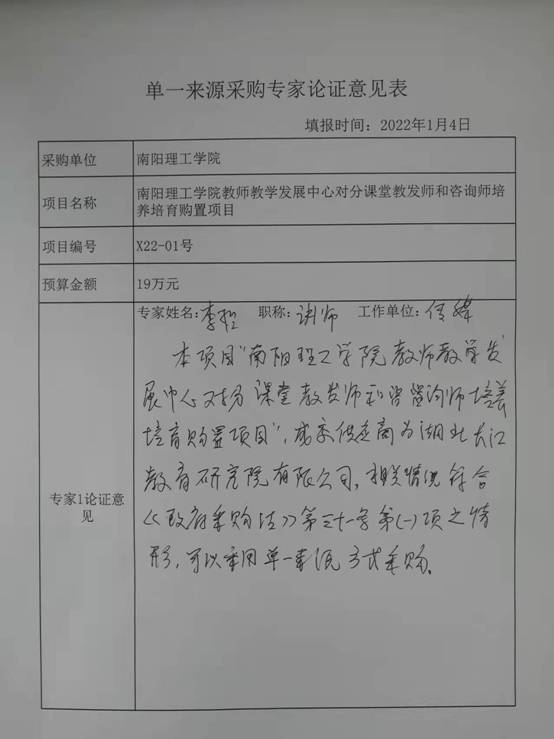 单一来源采购专家论证意见表
填报时间：2022年1月4日
采购单位 南阳理工学院
项目名称 南阳理工学院教师教学发展中心对分课堂教发师和咨询师培
养培育购置项目
项目编号 X22-01号
预算金额 19万元
专家1论证意
见
专家姓名：李 职称：讲师 工作单位：传媒
本项目“南阳理工学院教师教学发
展中心对分课堂教发师和咨询师培养
培育购置项目”，成交供应商为湖北长江
教育研究院有限公司，相关情况符合
《政府采购法》第三十一条第（一）项之情
形，可以采用单一来源方式采购。